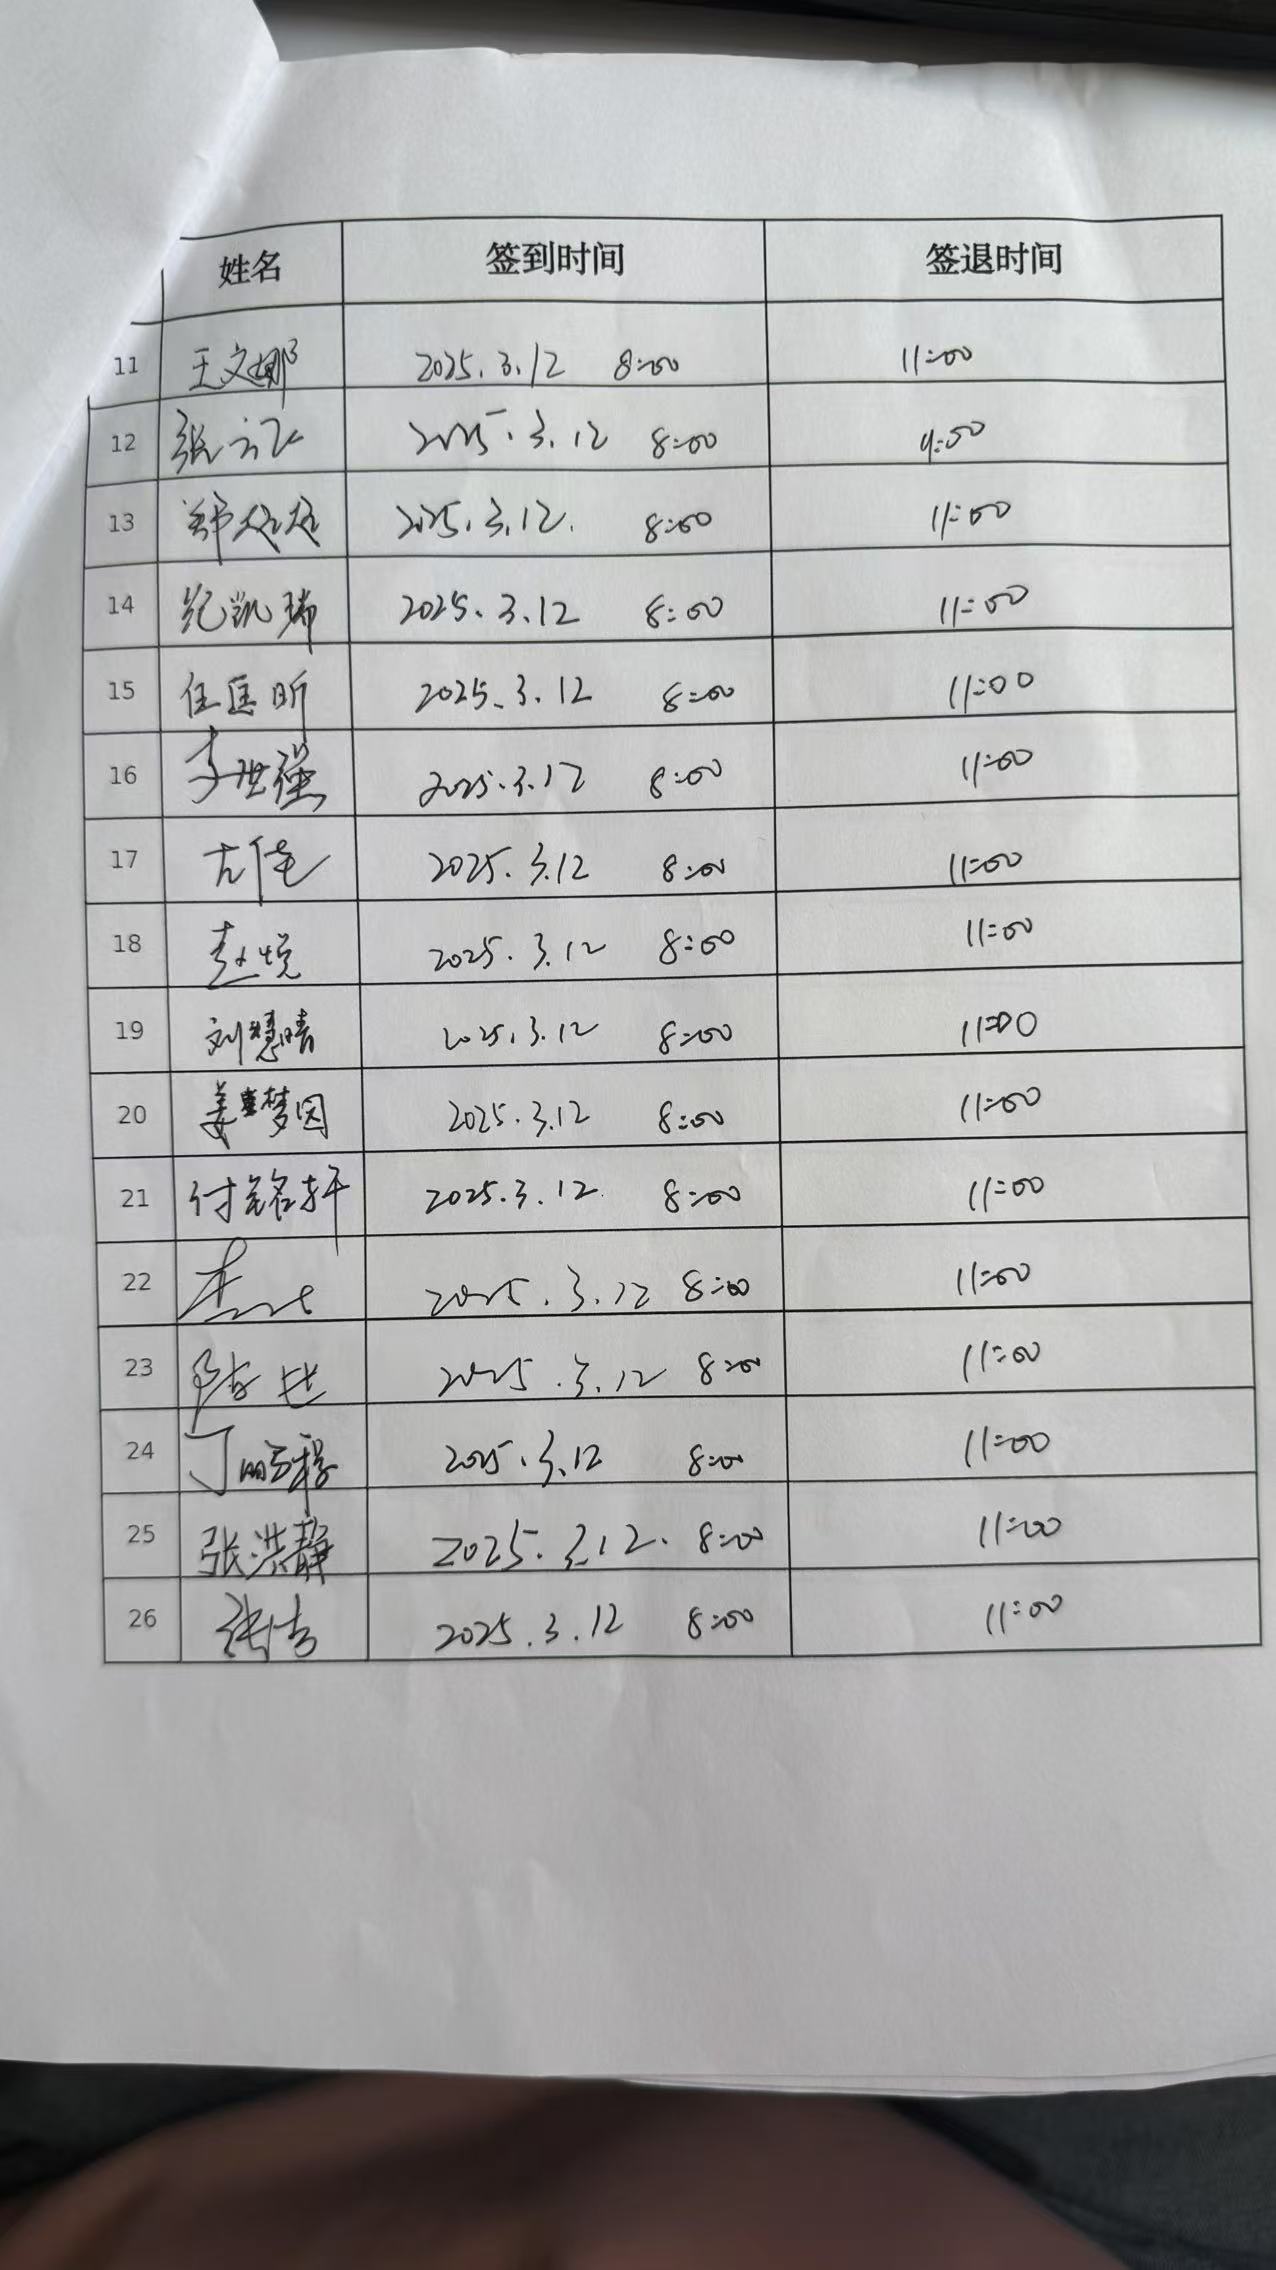 姓名 签到时间 签退时间
11 王文娜 2025.3.12 8:00 11:00
12 张 2025.3.12 8:00 9:00
13 郑 2025.3.12. 8:00 11:00
14 纪凯瑞 2025.3.12 8:00 11:00
15 任匡昕 2025.3.12 8:00 11:00
16 李世强 2025.3.12 8:00 11:00
17 2025.3.12 8:00 11:00
18 赵悦 2025.3.12 8:00 11:00
19 刘慧晴 2025.3.12 8:00 11:00
20 姜梦因 2025.3.12 8:00 11:00
21 付铭轩 2025.3.12. 8:00 11:00
22 2025.3.12 8:00 11:00
23 陈 2025.3.12 8:00 11:00
24 丁 2025.3.12 8:00 11:00
25 张洪静 2025.3.12. 8:00 11:00
26 张 2025.3.12 8:00 11:00